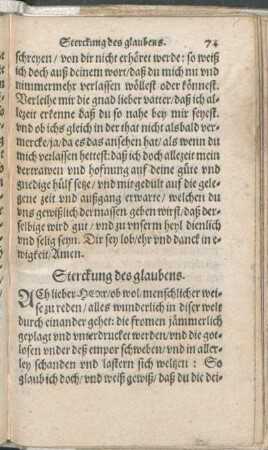 Sterckung des glaubens. 74
schreyen/ von dir nicht erhöret werde: so weiß
ich doch auß deinem wort/ daß du mich nu vnd
nimmermehr verlassen wöllest oder könnest.
Verleihe mir die gnad lieber vatter/ daß ich al-
lezeit erkenne daß du so nahe bey mir seyest.
vnd ob ichs gleich in der that nicht alsbald ver-
mercke/ ja/ da es das ansehen hat/ als wenn du
mich verlassen hettest: daß ich doch allezeit mein
vertrawen vnd hofnung auf deine güte vnd
gnedige hülf setze/ vnd mit gedült auf die gele-
gene zeit vnd außgang erwarte/ welchen du
vns gewißlich dermassen geben wirst/ daß der-
selbige wird gut/ vnd zu vnserm heyl dienlich
vnd selig seyn. Dir sey lob/ ehr vnd danck in e-
wigkeit/ Amen.
Sterckung des glaubens.
ACh lieber HErr/ ob wol menschlicher wei-
se zu reden/ alles wunderlich in diser welt
durch einander gehet: die fromen jämmerlich
geplagt vnd vnterdrucket werden/ vnd die got-
losen vnder deß empor schweben/ vnd in aller-
ley schanden vnd lastern sich weltzen: So
glaub ich doch/ vnd weiß gewiß/ daß du die dei-